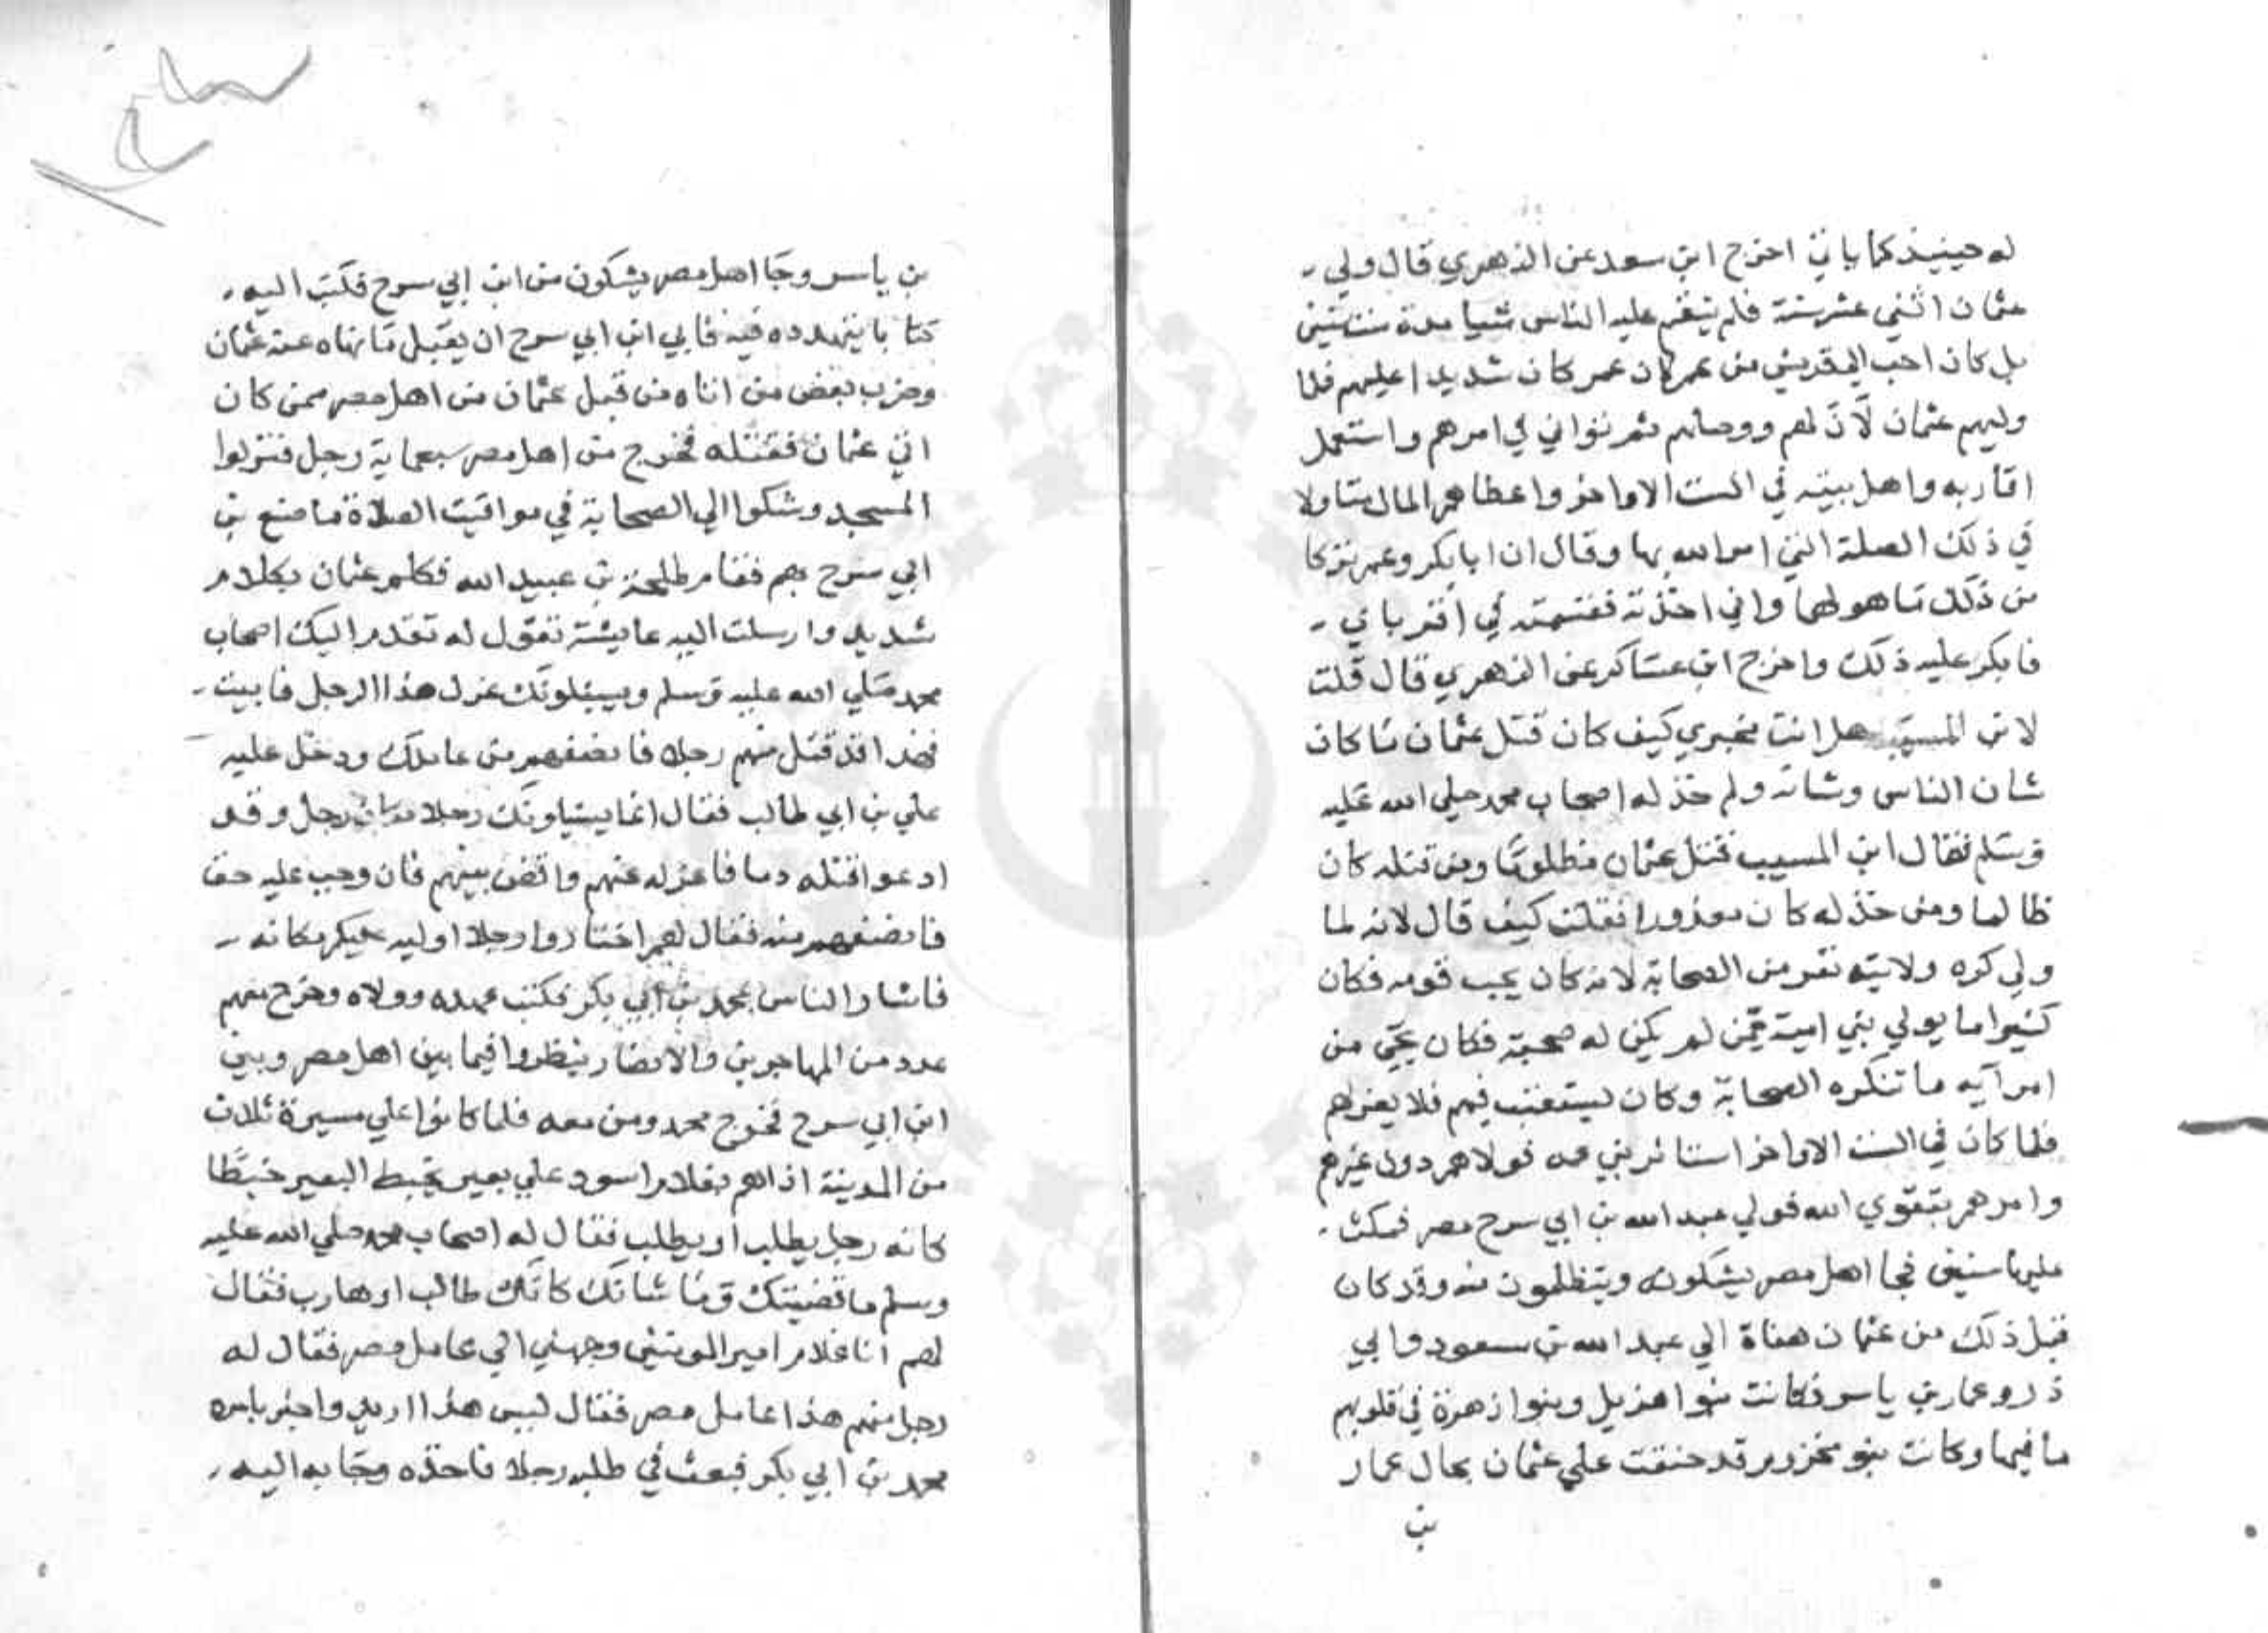 له حينيذ كما ياتي اخرج ابن سعد عن الزهري قال ولي
عثمان اثني عشر سنة فلم ينقم عليه الناس شيا مدة ست سنين
بل كان احب الي قريش من عمر لان عمر كان شديدا عليهم فلما
وليهم عثمان لان لهم ووصلهم ثم توانى في امرهم واستعمل
اقاربه واهل بيته في الست الاواخر واعطاهم المال متاولا
في ذلك الصلة التي امر الله بها وقال ان ابا بكر وعمر تركا
من ذلك ما هو لهما واني اخذته فقسمته في اقرباي
فانكر عليه ذلك واخرج ابن عساكر عن الزهري قال قلت
لابن المسيب هل انت مخبري كيف كان قتل عثمان ما كان
شان الناس وشانه ولم خذله اصحاب محمد صلي الله عليه
وسلم فقال ابن المسيب قتل عثمان مظلوما ومن قتله كان
ظالما ومن خذله كان معذورا فقلت كيف قال لانه لما
ولي كره ولايته نفر من الصحابة لانه كان يحب قومه فكان
كثيرا ما يولي بني امية ممن لم يكن له صحبة فكان يجي من
امرآيه ما تنكره الصحابة وكان يستعتب فيهم فلا يعزلهم
فلما كان في الست الاواخر استاثر بني عمه فولاهم دون غيرهم
وامرهم بتقوي الله فولي عبد الله بن ابي سرح مصر فمكث
عليها سنين فجا اهل مصر يشكونه ويتظلمون منه وقد كان
قبل ذلك من عثمان هناة الي عبد الله بن مسعود وابي
ذر وعمار بن ياسر فكانت بنوا هذيل وبنوا زهرة في قلوبهم
ما فيها وكانت بنو مخزوم قد حنقت علي عثمان بحال عمار
بن
بن ياسر وجا اهل مصر يشكون من ابن ابي سرح فكتب اليه
كتابا يتهدده فيه فابي ابن ابي سرح ان يقبل ما نهاه عنه عثمان
وضرب بعض من اتاه من قبل عثمان من اهل مصر ممن كان
اتي عثمان فقتله فخرج من اهل مصر سبعماية رجل فنزلوا
المسجد وشكوا الي الصحابة في مواقيت الصلاة ما صنع بن
ابي سرح بهم فقام طلحة بن عبيد الله فكلم عثمان بكلام
شديد وارسلت اليه عايشة تقول له تقدم اليك اصحاب
محمد صلي الله عليه وسلم ويسيلونك عزل هذا الرجل فابيت
فهذا قد قتل منهم رجلا فانصفهم من عاملك ودخل عليه
علي بن ابي طالب فقال انما يسيلونك رجلا مكان رجل وقد
ادعوا قتله دما فاعزله عنهم واقض بينهم فان وجب عليه حق
فانصفهم منه فقال لهم اختاروا رجلا اوليه عليكم مكانه
فاشار الناس بمحمد بن ابي بكر فكتب عهده وولاه وخرج معهم
عدد من المهاجرين والانصار ينظروا فيما بين اهل مصر وبين
ابن ابي سرح فخرج محمد ومن معه فلما كانوا علي مسيرة ثلاث
من المدينة اذا هم بغلام اسود علي بعير يخبط البعير خبطا
كانه رجل يطلب او يطلب فقال له اصحاب محمد صلي الله عليه
وسلم ما قضيتك وما شانك كانك طالب او هارب فقال
لهم انا غلام امير المومنين وجهني الي عامل مصر فقال له
رجل منهم هذا عامل مصر فقال ليس هذا اريد واخبر بامره
محمد بن ابي بكر فبعث في طلبه رجلا فاخذه وجا به اليه